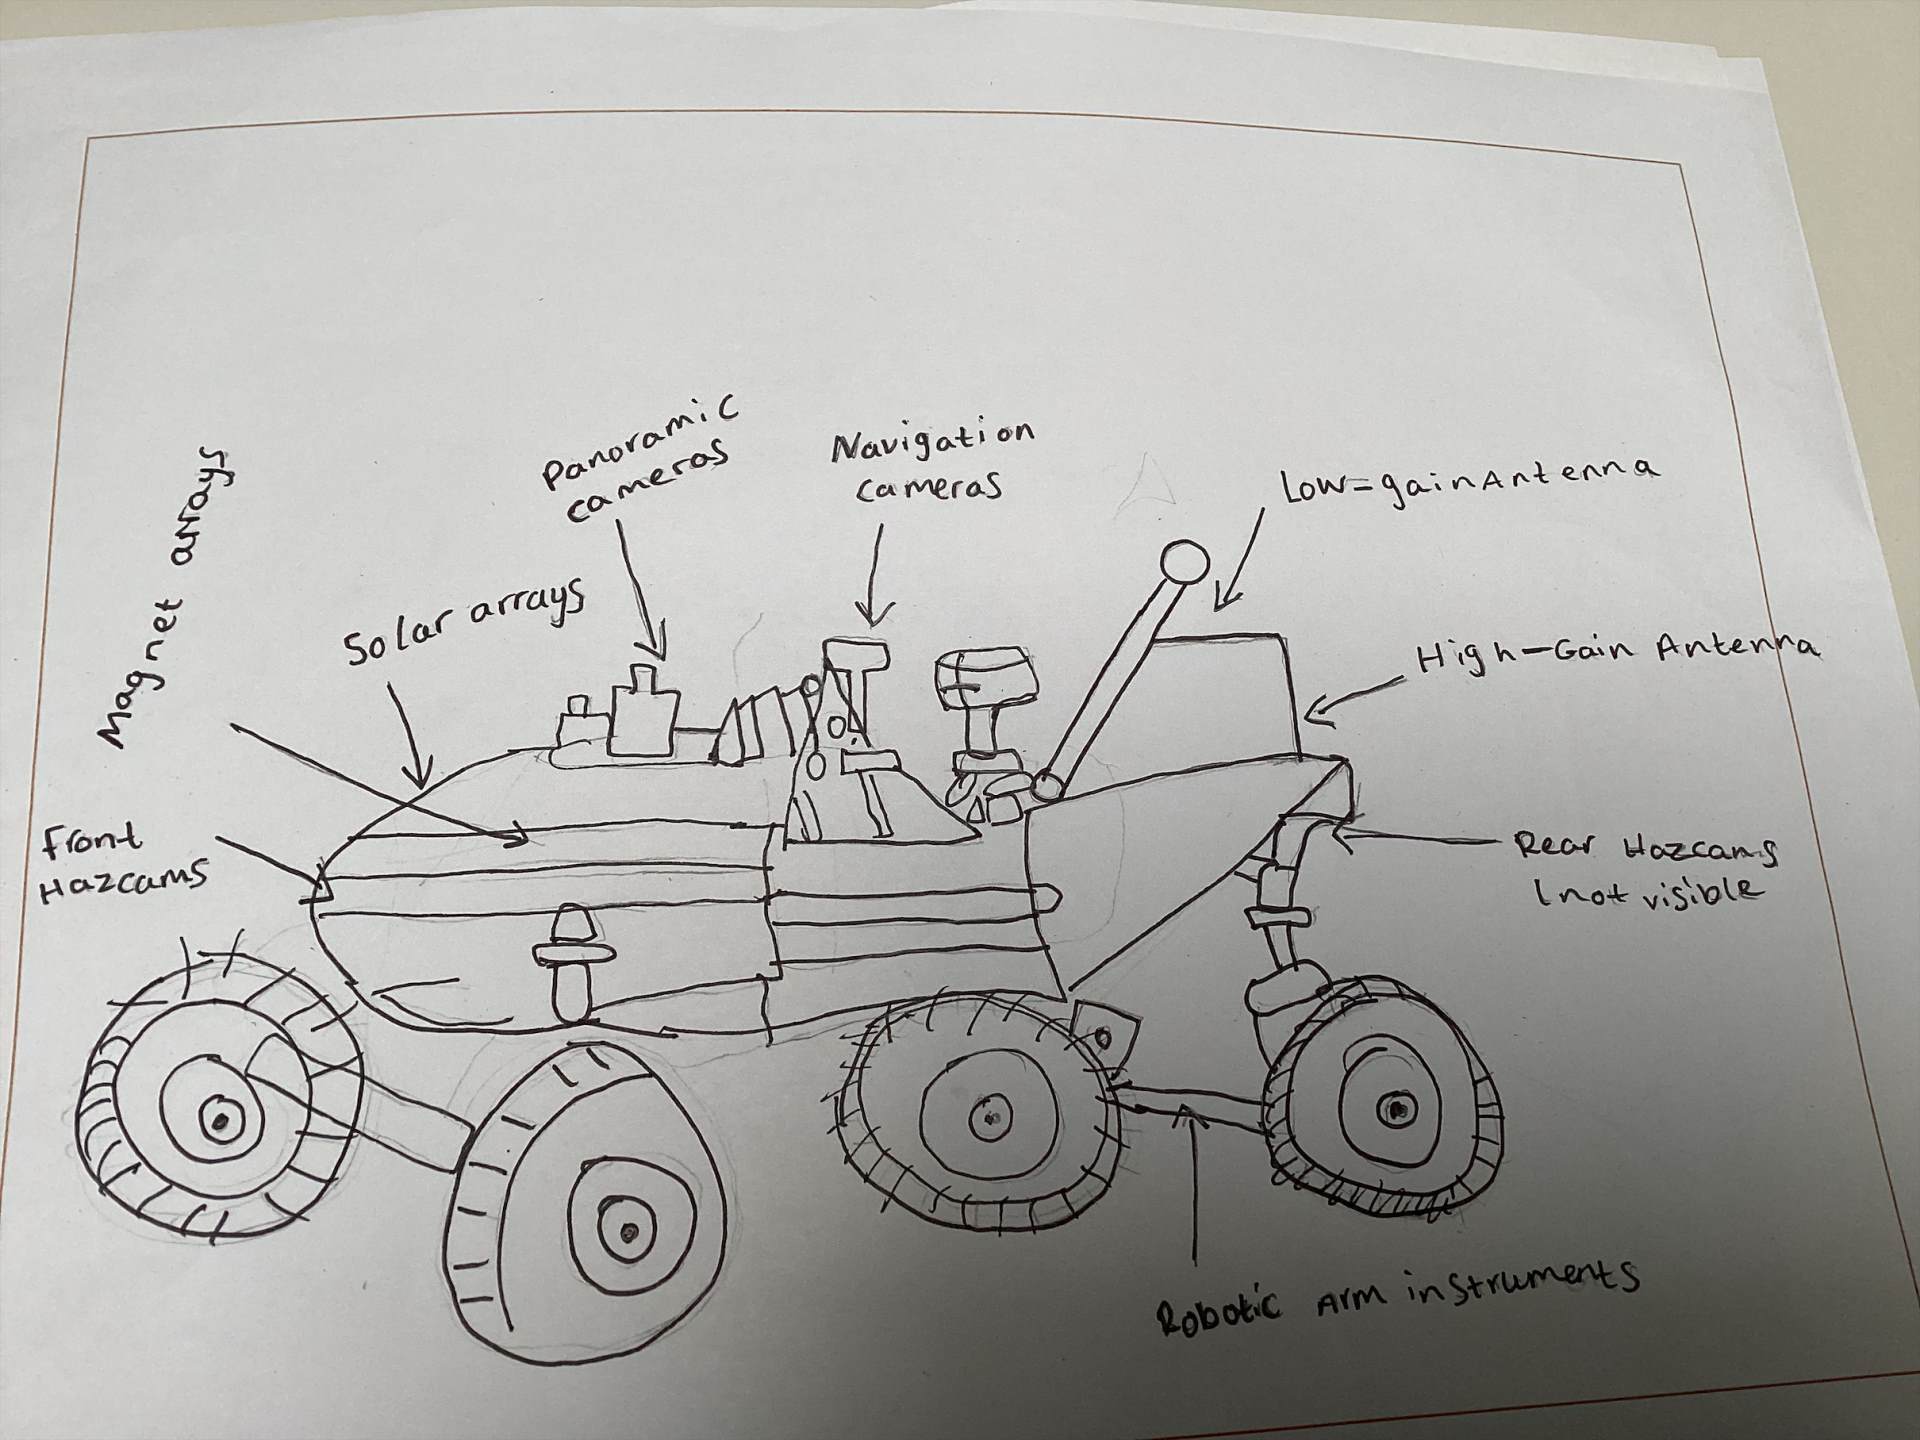 Magnet arrays
Solar arrays
Panoramic
cameras
Navigation
cameras
Low=gain Antenna
High-Gain Antenna
Front
Hazcams
Rear Hazcams
(not visible
Robotic Arm instruments